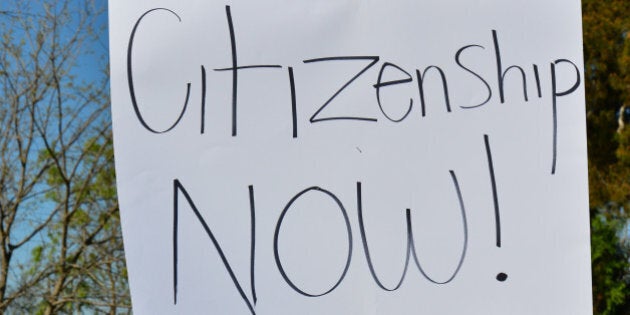 Citizenship
NOW!